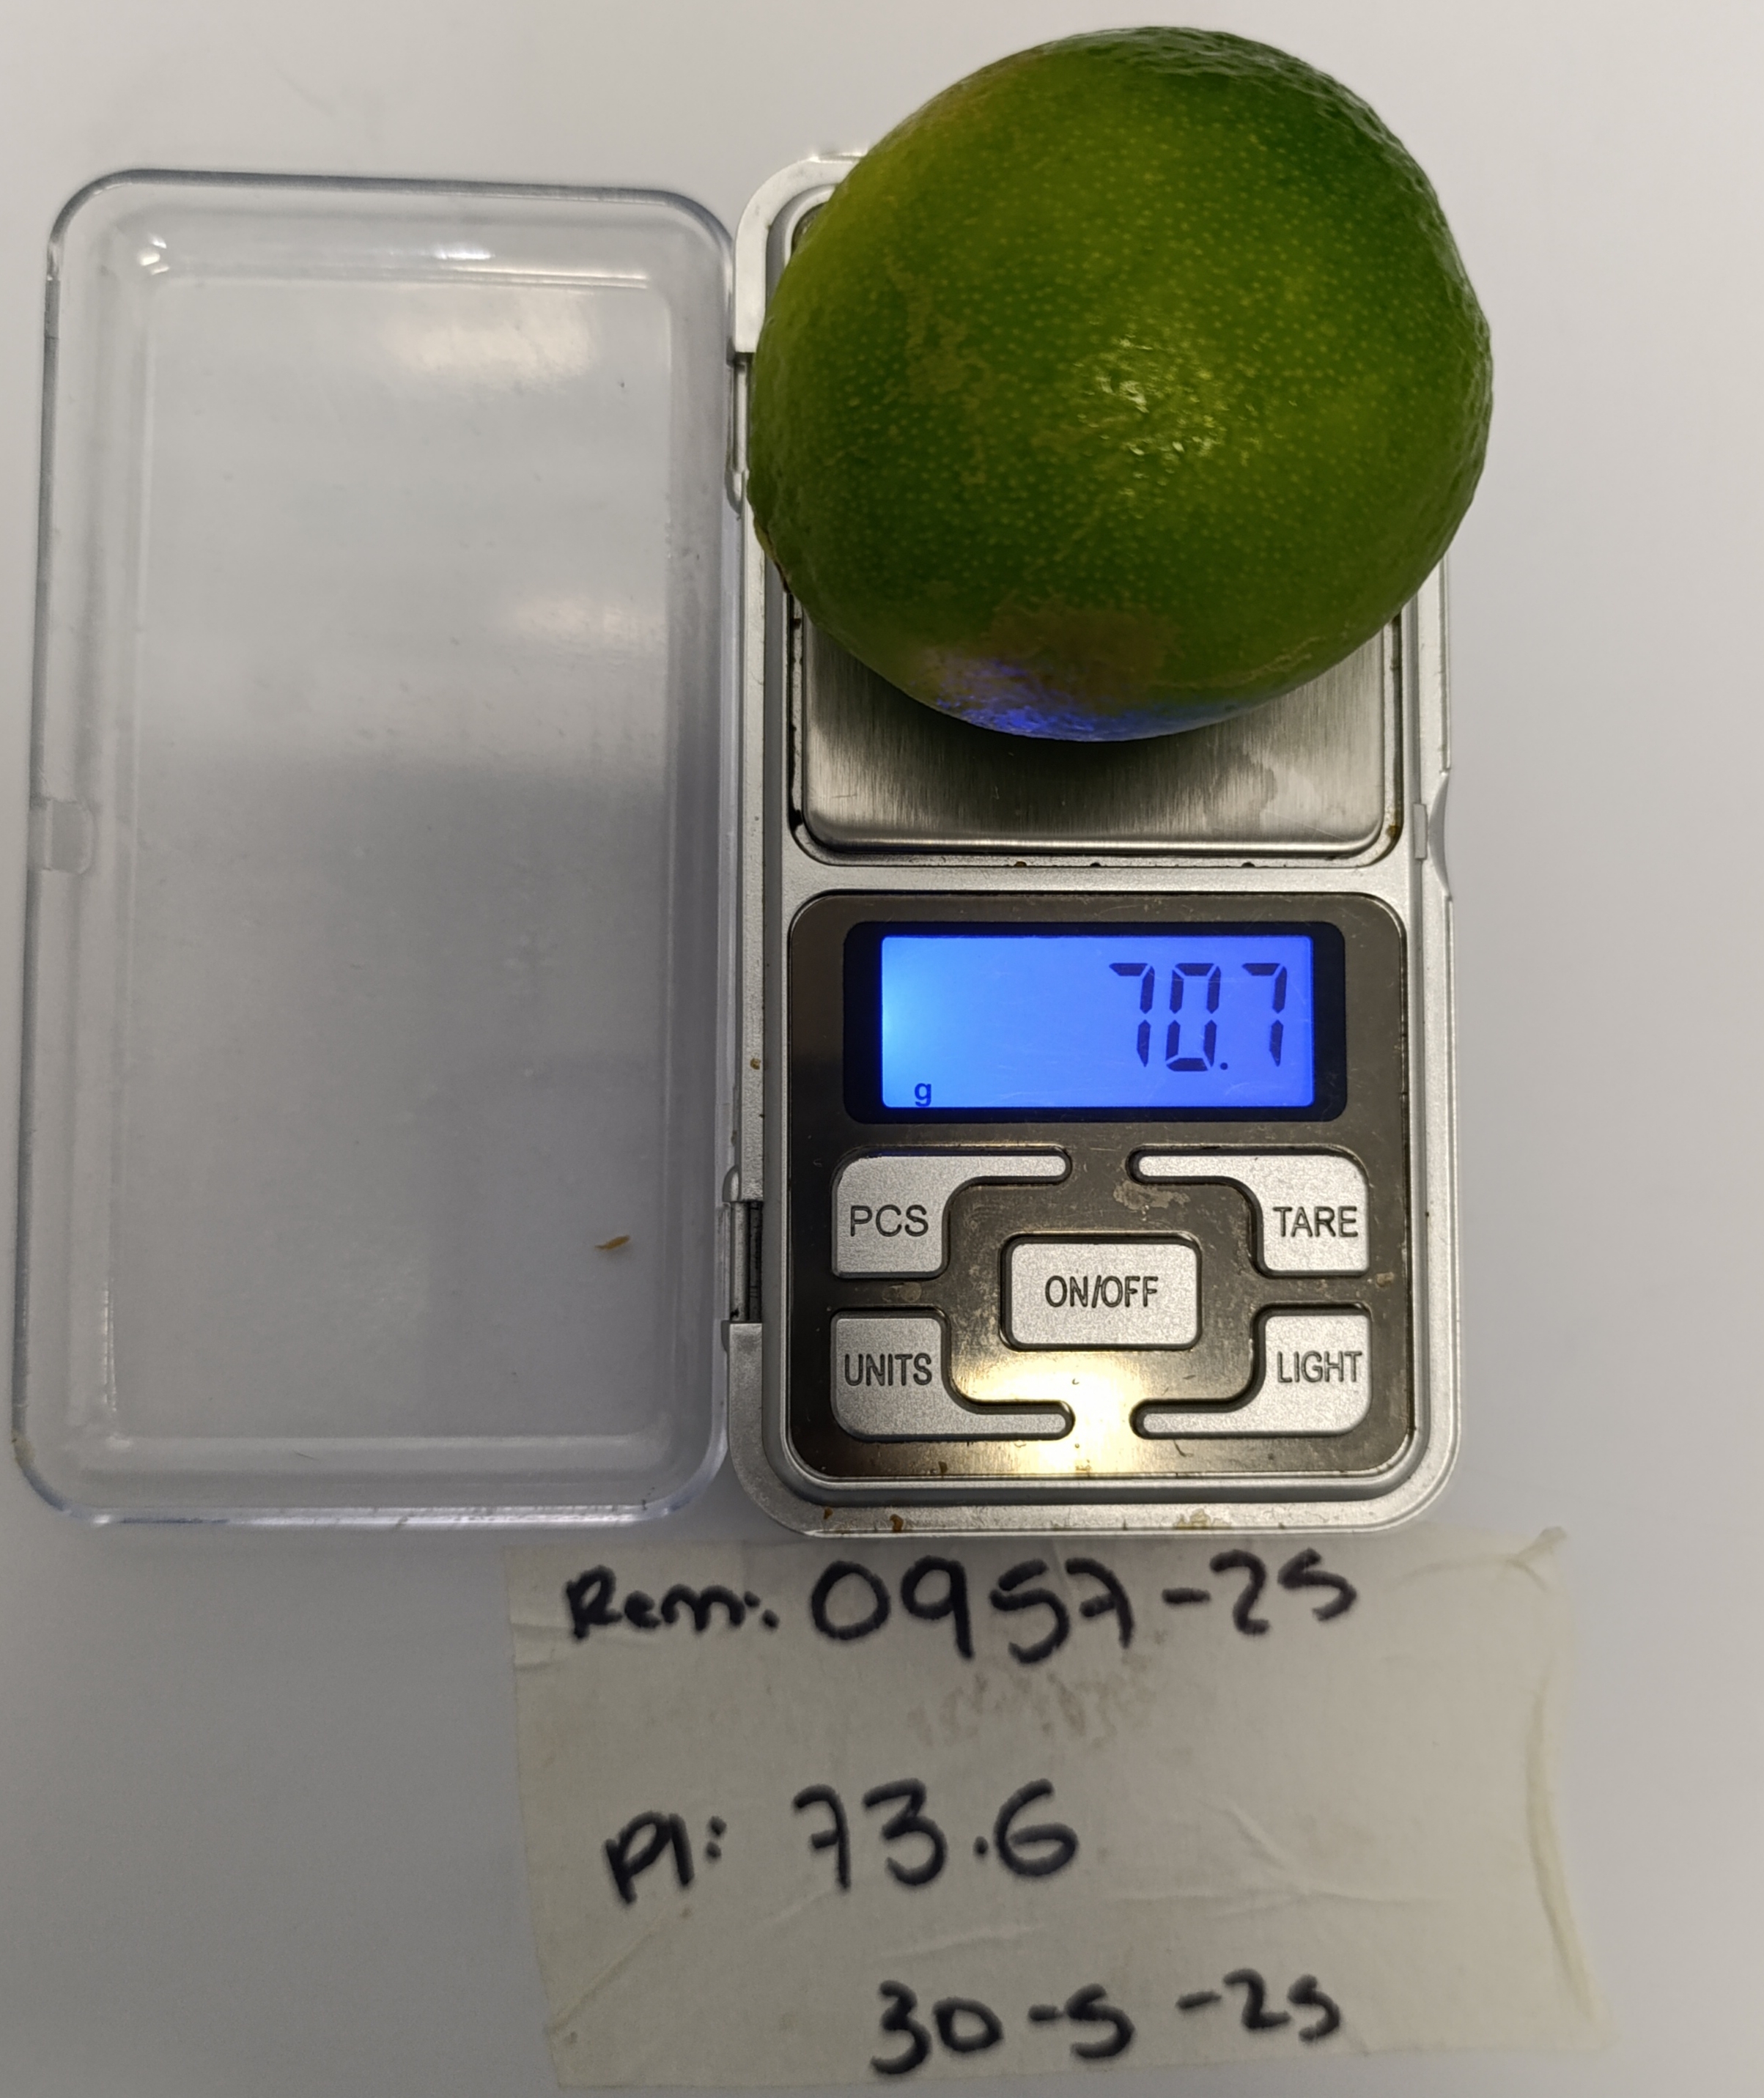 70.7
g
PCS
TARE
ON/OFF
UNITS
LIGHT
Rem: 0957-25
PI: 73.6
30-5-25